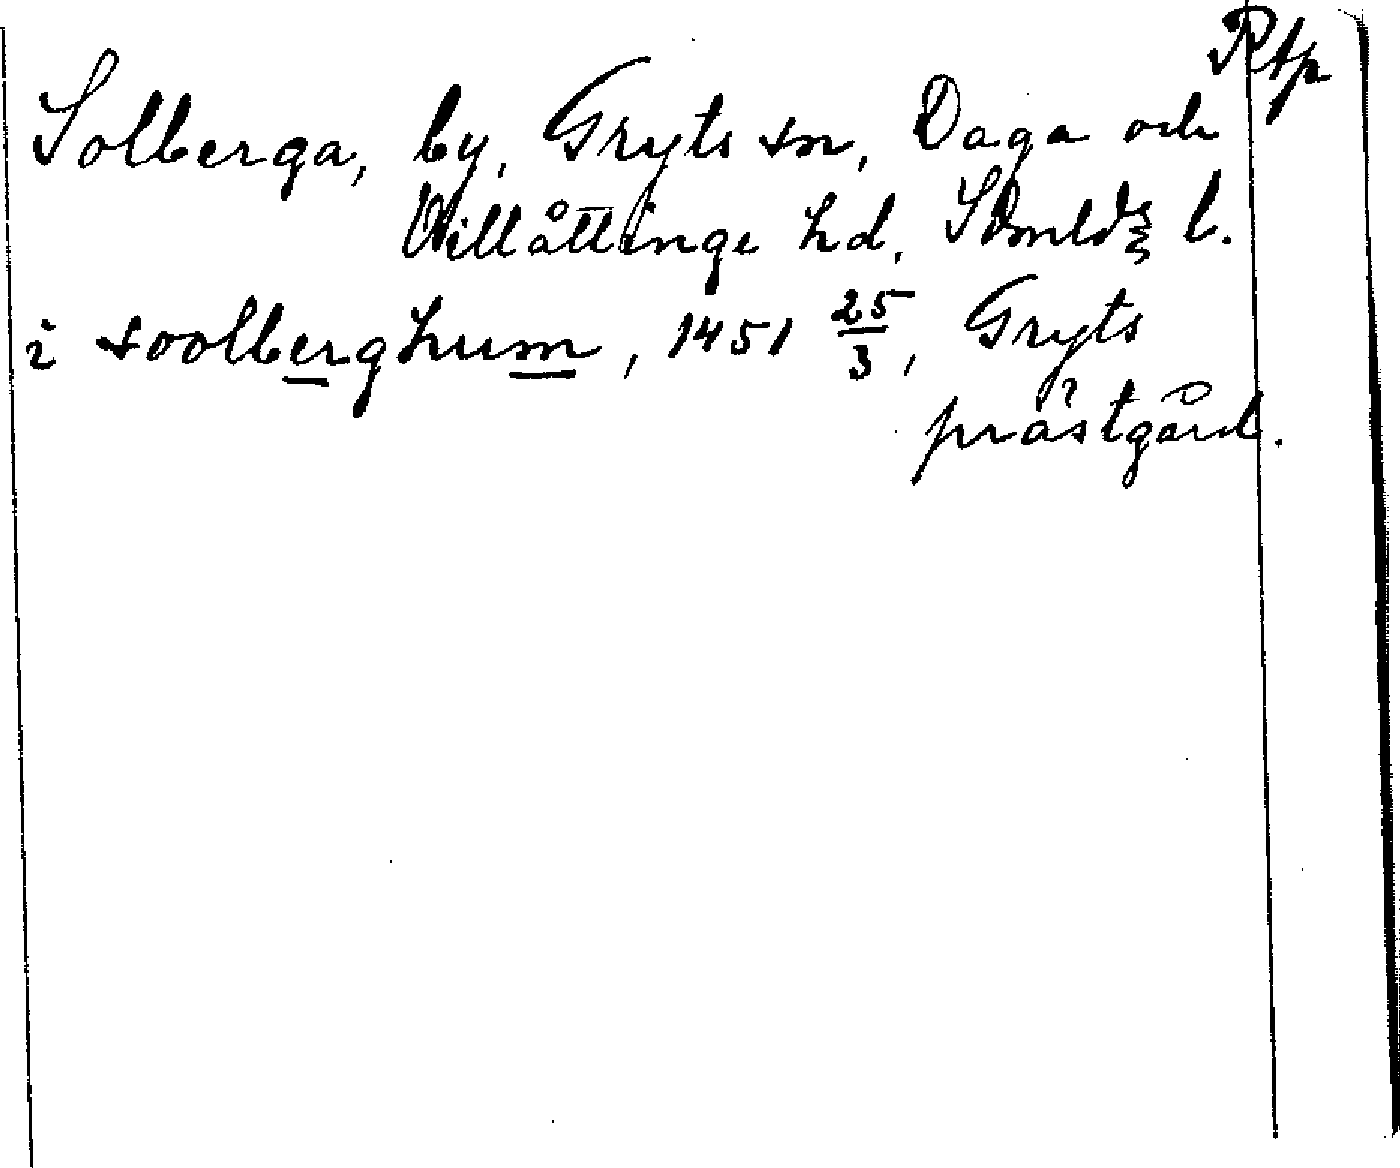 Rtp
Solberga, by, Gryts sn, Daga och
Villåttinge hd, Sdmlds l.
i soolberghum, 1451 25/3, Gryts
prästgård.